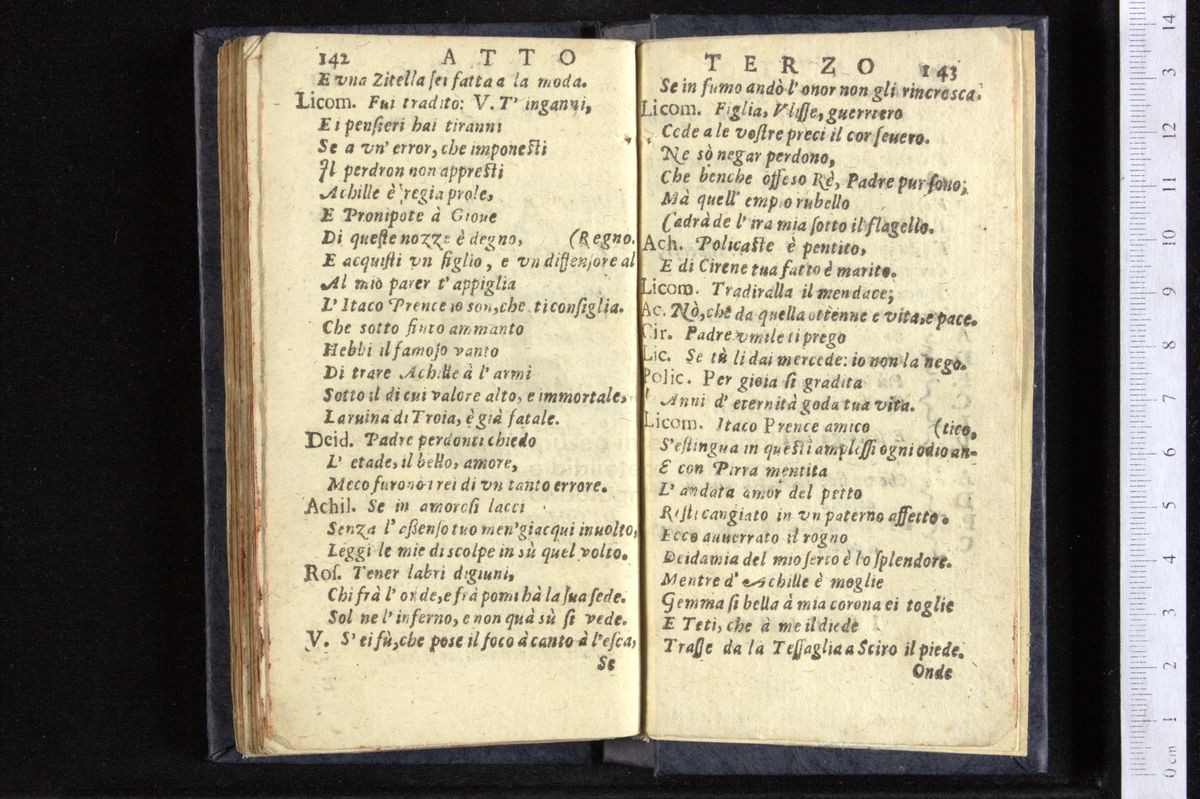 142 ATTO
E vna Zitella sei fatta a la moda.
Licom. Fui tradito: V. T' inganni,
E i pensieri hai tiranni
Se a vn' error, che imponesti
Il perdron non appresti
Achille è regia prole,
E Pronipote à Gioue
Di queste nozze è degno, (Regno.
E acquisti vn figlio, e vn diffensore al
Al mio parer t' appiglia
L' Itaco Prence io son, che ti consiglia.
Che sotto finto ammanto
Hebbi il famoso vanto
Di trare Achille à l' armi
Sotto il di cui valore alto, e immortale,
La ruina di Troia, è già fatale.
Deid. Padre perdonti chiedo
L' etade, il bello, amore,
Meco furono i rei di vn tanto errore.
Achil. Se in amorosi lacci
Senza l' assenso tuo men' giacqui inuolto,
Leggi le mie discolpe in sù quel volto.
Ros. Tener labri digiuni,
Chi frà l' onde, e frà pomi hà la sua sede.
Sol ne l' inferno, e non quà sù si vede.
V. S' ei fù, che pose il foco à canto à l' esca,
Se
TERZO 143
Se in fumo andò l' onor non gli rincresca.
Licom. Figlia, Vlisse, guerriero
Cede a le vostre preci il cor seuero.
Ne sò negar perdono,
Che benche offeso Rè, Padre pur sono;
Mà quell' empio rubello
Cadrà de l' ira mia sotto il flagello.
Ach. Policaste è pentito,
E di Cirene tua fatto è marito.
Licom. Tradiralla il mendace;
Ac. Nò, che da quella ottenne e vita, e pace.
Cir. Padre vmile ti prego
Lic. Se tù li dai mercede: io non la nego.
Polic. Per gioia si gradita
Anni d' eternità goda tua vita.
Licom. Itaco Prence amico (tico,
S' estingua in questi amplessi ogni odio an-
E con Pirra mentita
L' andata amor del petto
Resti cangiato in vn paterno affetto.
Ecco auuerrato il rogno
Deidamia del mio serto è lo splendore.
Mentre d' Achille è moglie
Gemma si bella à mia corona ei toglie
E Teti, che à me il diede
Trasse da la Tessaglia a Sciro il piede.
Onde
14
3
12
11
10
9
8
7
6
5
4
3
2
1
0 cm